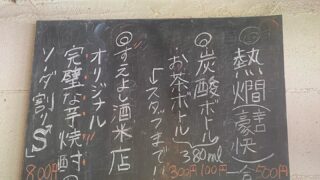 ◎熱燗(豪快)
一合 500円
◎炭酸ボトル 100円
・お茶ボトル 300円
380ml
↳スタッフまで!!
◎すえよし酒米店
オリジナル
完璧な芋焼酎の
ソーダ割り
800円